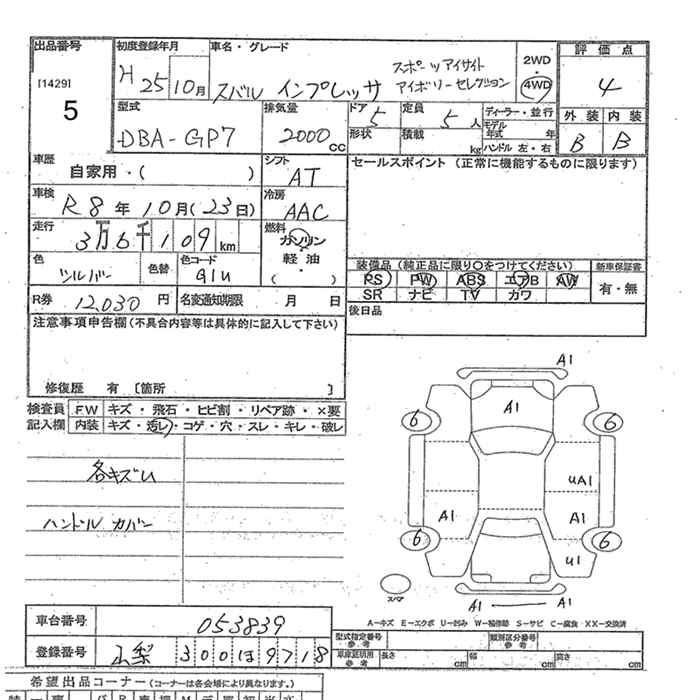 出品番号 初度登録年月 車名・グレード 2WD 評価点
[1429] H25 10月 スバル インプレッサ スポーツアイサイト アイボリーセレクション ・ 4WD 4
5 型式 排気量 ドア 5 定員 5人 ディーラー・並行 外装 内装
DBA-GP7 2000cc 形状 積載 kg モデル年式 年 B B
ハンドル 左・右
車歴 自家用・( ) シフト AT セールスポイント (正常に機能するものに限ります)
車検 R8年10月(23日) 冷房 AAC
走行 3万6千109km 燃料 ガソリン・軽油・( )
色 シルバー 色替 色コード G1U 装備品 (純正品に限り○をつけてください) 新車保証書
PS PW ABS エアB AW 有・無
R券 12,030円 名変通知期限 月 日 SR ナビ TV カワ
注意事項申告欄(不具合内容等は具体的に記入して下さい) 後日品
修復歴 有 [箇所 ]
検査員 FW キズ・飛石・ヒビ割・リペア跡・×要
記入欄 内装 キズ・汚レ・コゲ・穴・スレ・キレ・破レ
各キズU
ハンドルカバー
A1
A1
6 6
UA1
A1 A1
6 6
U1
スペア A1 A1
A-キズ E-エクボ U-凹み W-補修跡 S-サビ C-腐食 XX-交換済
車台番号 053839
登録番号 山梨 300は9718 型式指定番号 参考 類別区分番号 参考
車庫証明用 参考 長さ cm 幅 cm 高さ cm
希望出品コーナー(コーナーは各会場により異なります。)